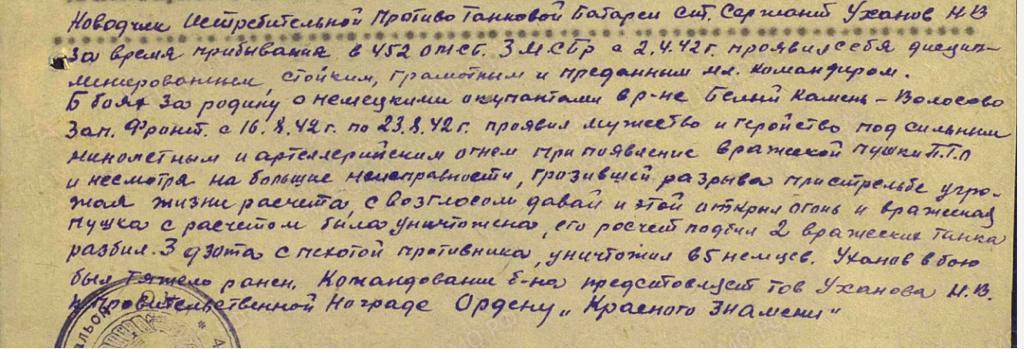 Новодчик Истребительной Противо Танковой Батареи снт. Сержант Уханов Н.В
За время прибывания в 452 омсб. 3 МСБр с 2.4.42 г. проявил себя дисцип-
ленированным, стойким, грамотным и преданным мл. командиром.
В боях за родину с немецкими окупантами в р-не Белый Камень – Волосово
Зап. Фронт. с 16.8.42 г. по 23.8.42 г. проявил мужество и геройство под сильным
минометным и артеллерийским огнем при появление вражеской пушки П.Т.О
и несмотря на большие неисправности, грозившей разрыва при стрельбе угро-
жая жизни расчета, с возгласом давай и этой открыл огонь и вражеская
пушка с расчетом была уничтожена, его росчет подбил 2 вражеских танка
разбил. 3 дзота с пехотой противника, уничтожил 65 немцев. Уханов в бою
был тяжело ранен. Командование б-на предстовляет тов Уханова Н.В.
к провительственной Награде Ордену „Красного Знамени"